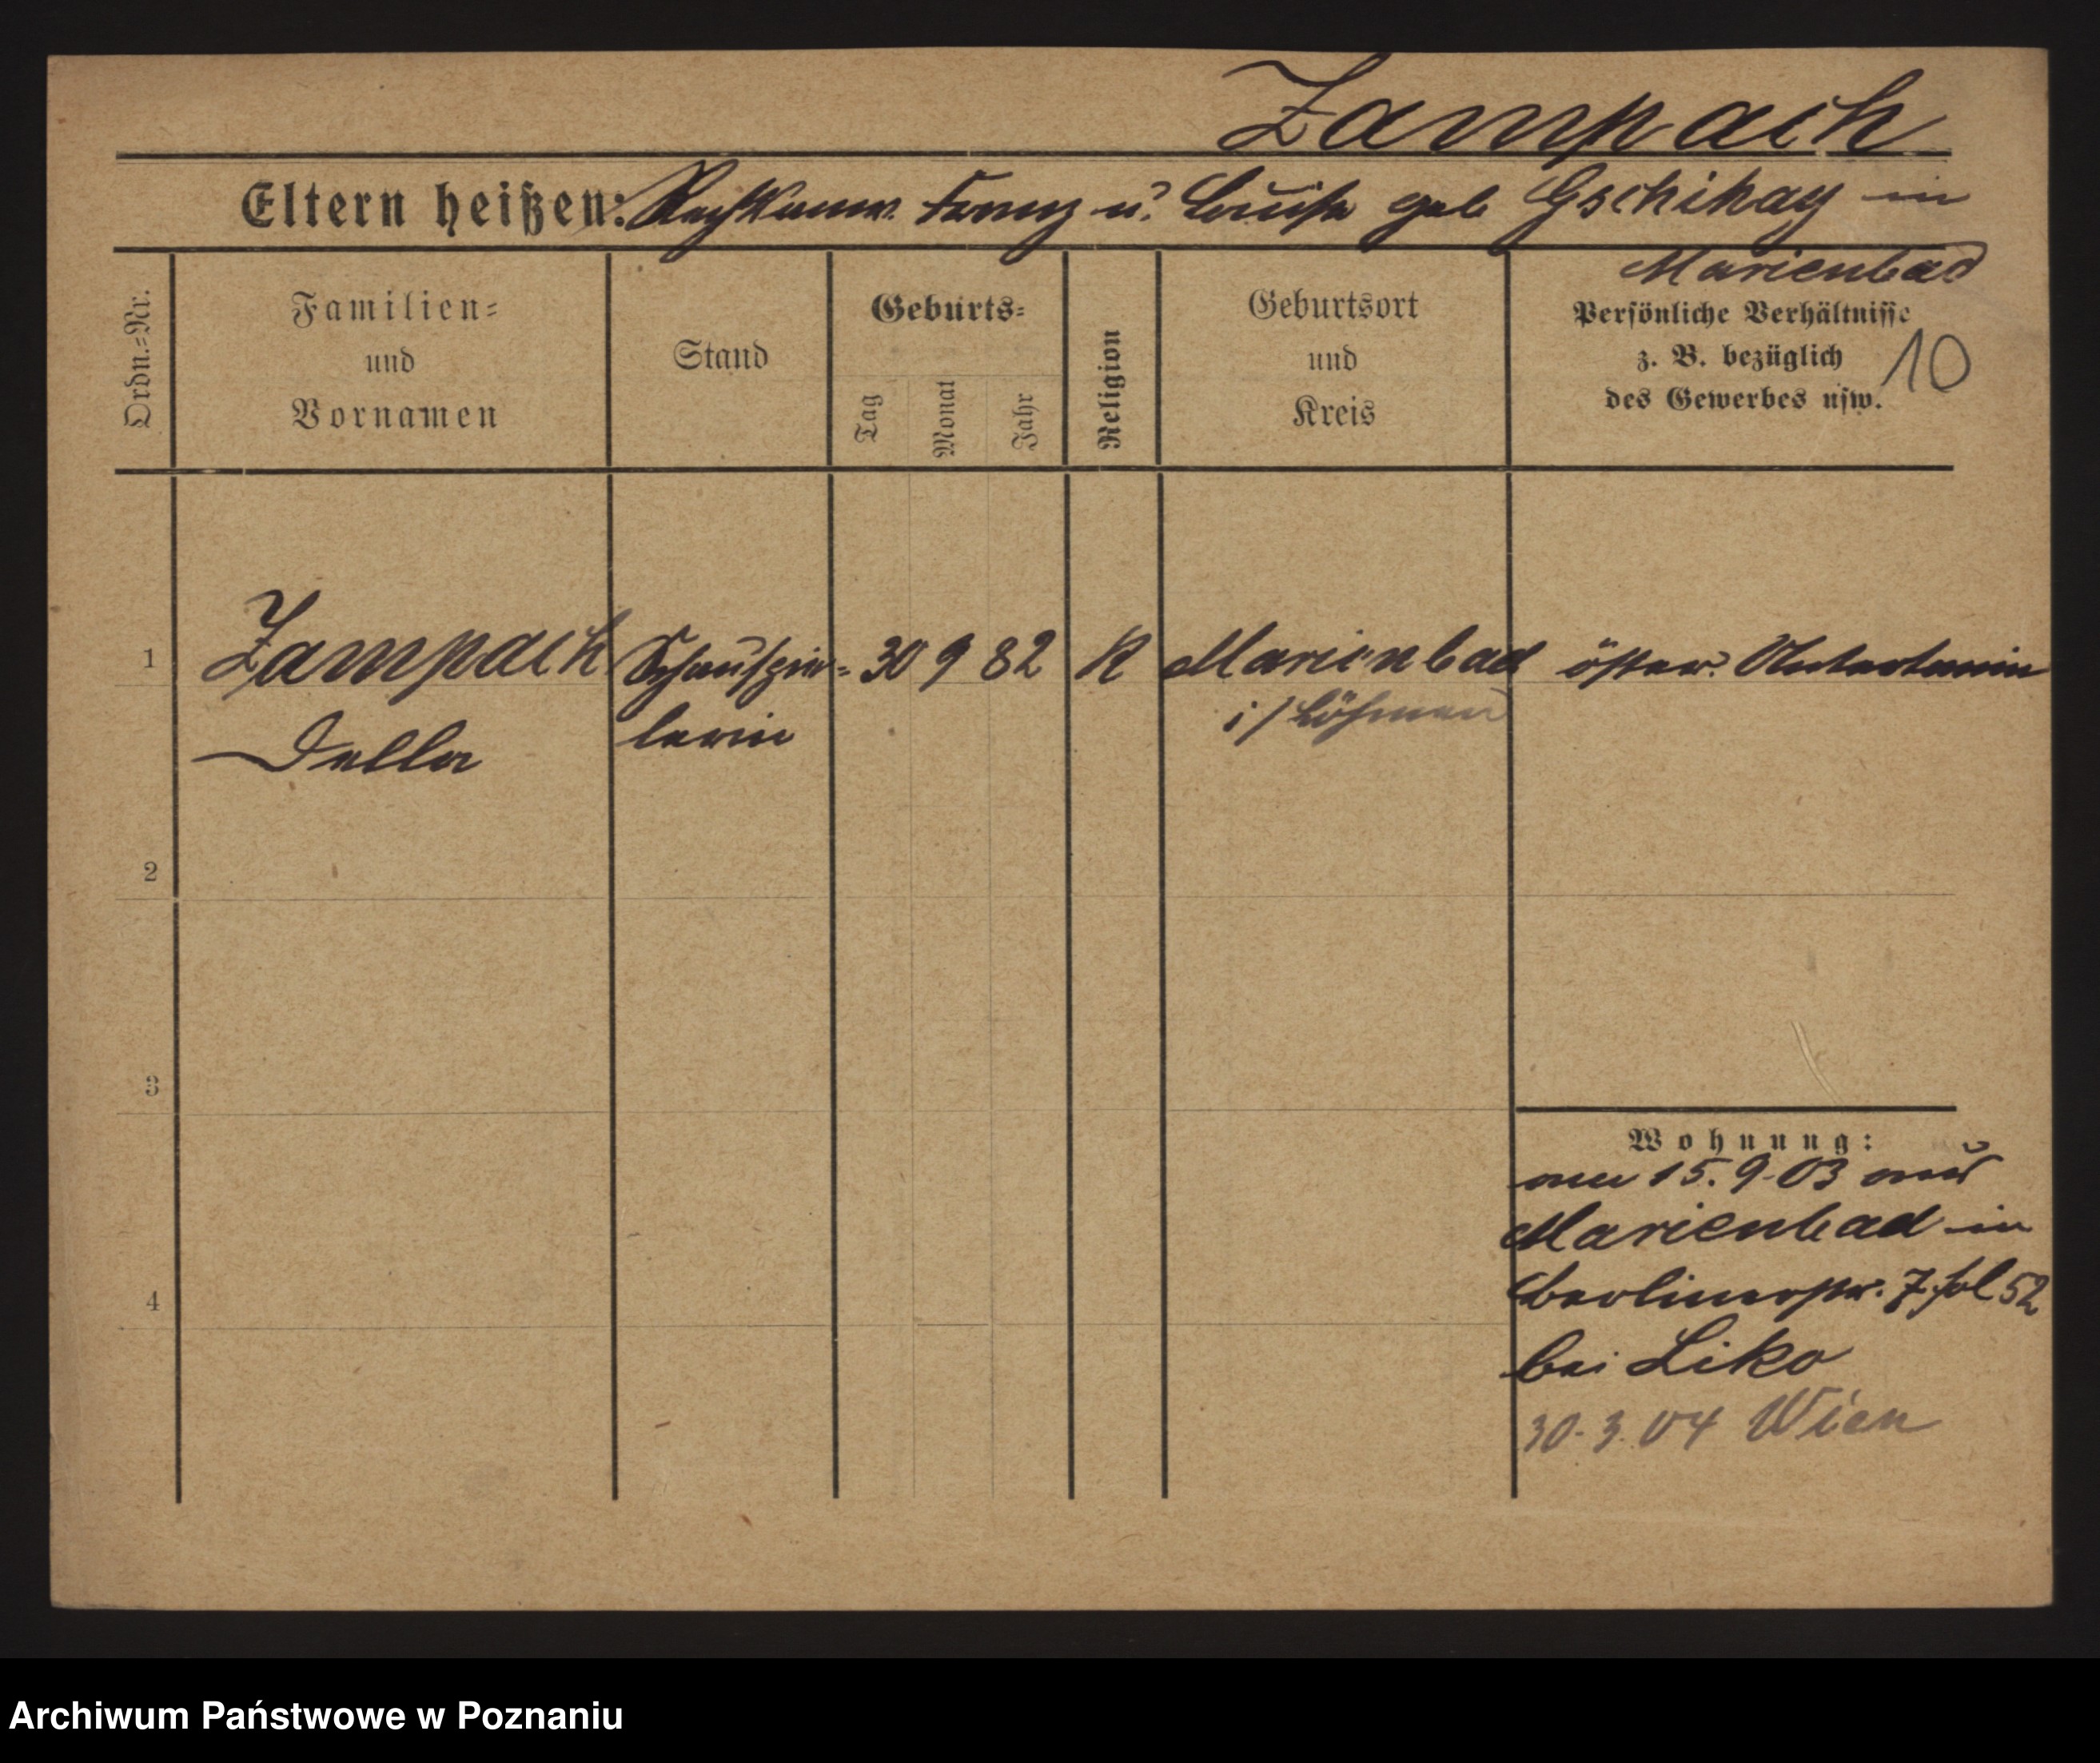 Zampach
Eltern heißen: Franz u. Louise geb Gschihay in
Marienbad
Ordn.=Nr.
Familien=
und
Vornamen
Stand
Geburts=
Tag
Monat
Jahr
Religion
Geburtsort
und
Kreis
Persönliche Verhältnisse
z. B. bezüglich
des Gewerbes usw.
10
1 Zampach Schauspie= 30 9 82 K Marienbad österr. Untertanin
Della lerin i/Böhmen
2
3
Wohnung:
am 15.9.03 aus
Marienbad in
4 Berlinerstr. 7. pol 52
bei Liko
30.3.04 Wien
Archiwum Państwowe w Poznaniu